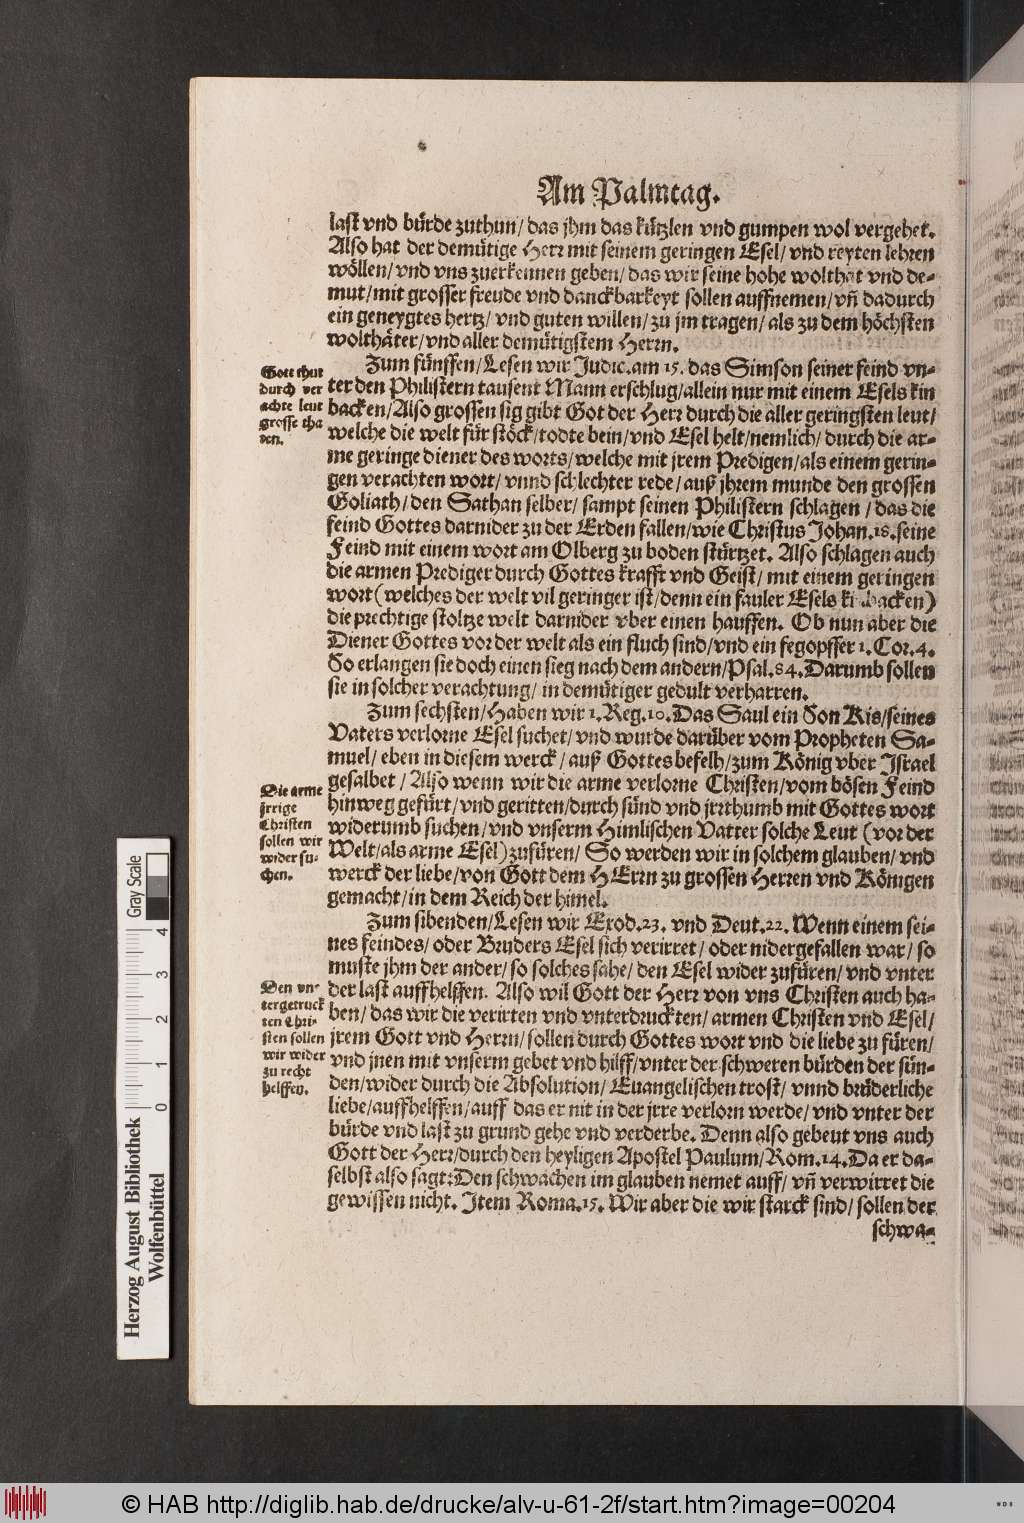 Am Palmtag.
last vnd bürde zuthun/ das jhm das kützlen vnd gumpen wol vergehet.
Also hat der demütige Herr mit seinem geringen Esel/ vnd reyten lehren
wöllen/ vnd vns zuerkennen geben/ das wir seine hohe wolthat vnd de-
mut/ mit grosser freude vnd danckbarkeyt sollen auffnemen/ vn̄ dadurch
ein geneygtes hertz/ vnd guten willen/ zu jm tragen/ als zu dem höchsten
wolthäter/ vnd aller demütigstem Herrn.
Zum fünffen/ Lesen wir Judic. am 15. das Simson seiner feind vn-
ter den Philistern tausent Mann erschlug/ allein nur mit einem Esels kin
backen/ Also grossen sig gibt Got der Herr durch die aller geringsten leut/
welche die welt für stöck/ todte bein/ vnd Esel helt/ nemlich/ durch die ar-
me geringe diener des worts/ welche mit jrem Predigen/ als einem gerin-
gen verachten wort/ vnnd schlechter rede/ auß jhrem munde den grossen
Goliath/ den Sathan selber/ sampt seinen Philistern schlagen/ das die
feind Gottes darnider zu der Erden fallen/ wie Christus Johan. 18. seine
Feind mit einem wort am Olberg zu boden stürtzet. Also schlagen auch
die armen Prediger durch Gottes krafft vnd Geist/ mit einem geringen
wort (welches der welt vil geringer ist/ denn ein fauler Esels kinbacken)
die prechtige stoltze welt darnider vber einen hauffen. Ob nun aber die
Diener Gottes vor der welt als ein fluch sind/ vnd ein fegopffer 1. Cor. 4.
So erlangen sie doch einen sieg nach dem andern/ Psal. 84. Darumb sollen
sie in solcher verachtung/ in demütiger gedult verharren.
Zum sechsten/ Haben wir 1. Reg. 10. Das Saul ein Son Kis/ seines
Vaters verlorne Esel suchet/ vnd wurde darüber vom Propheten Sa-
muel/ eben in diesem werck/ auß Gottes befelh/ zum König vber Israel
gesalbet/ Also wenn wir die arme verlorne Christen/ vom bösen Feind
hinweg gefürt/ vnd geritten/ durch sünd vnd jrrthumb mit Gottes wort
widerumb suchen/ vnd vnserm Himlischen Vatter solche Leut (vor der
Welt/ als arme Esel) zufüren/ So werden wir in solchem glauben/ vnd
werck der liebe/ von Gott dem HErrn zu grossen Herren vnd Königen
gemacht/ in dem Reich der himel.
Zum sibenden/ Lesen wir Exod. 23. vnd Deut. 22. Wenn einem sei-
nes feindes/ oder Bruders Esel sich verirret/ oder nidergefallen war/ so
muste jhm der ander/ so solches sahe/ den Esel wider zufüren/ vnd vnter
der last auffhelffen. Also wil Gott der Herr von vns Christen auch ha-
ben/ das wir die verirten vnd vnterdruckten/ armen Christen vnd Esel/
jrem Gott vnd Herrn/ sollen durch Gottes wort vnd die liebe zu füren/
vnd jnen mit vnserm gebet vnd hilff/ vnter der schweren bürden der sün-
den/ wider durch die Absolution/ Euangelischen trost/ vnnd brüderliche
liebe/ auffhelffen/ auff das er nit in der jrre verlorn werde/ vnd vnter der
bürde vnd last zu grund gehe vnd verderbe. Denn also gebeut vns auch
Gott der Herr/ durch den heyligen Apostel Paulum/ Rom. 14. Da er da-
selbst also sagt: Den schwachen im glauben nemet auff/ vn̄ verwirret die
gewissen nicht. Item Roma. 15. Wir aber die wir starck sind/ sollen der
schwa-
Gott thut
durch ver
achte leut
grosse tha
den.
Die arme
jrrige
Christen
sollen wir
wider su-
chen.
Den vn-
tergetruck
ten Chri-
sten sollen
wir wider
zu recht
helffen.
Herzog August Bibliothek
Wolfenbüttel
Gray Scale
0 1 2 3 4
© HAB http://diglib.hab.de/drucke/alv-u-61-2f/start.htm?image=00204